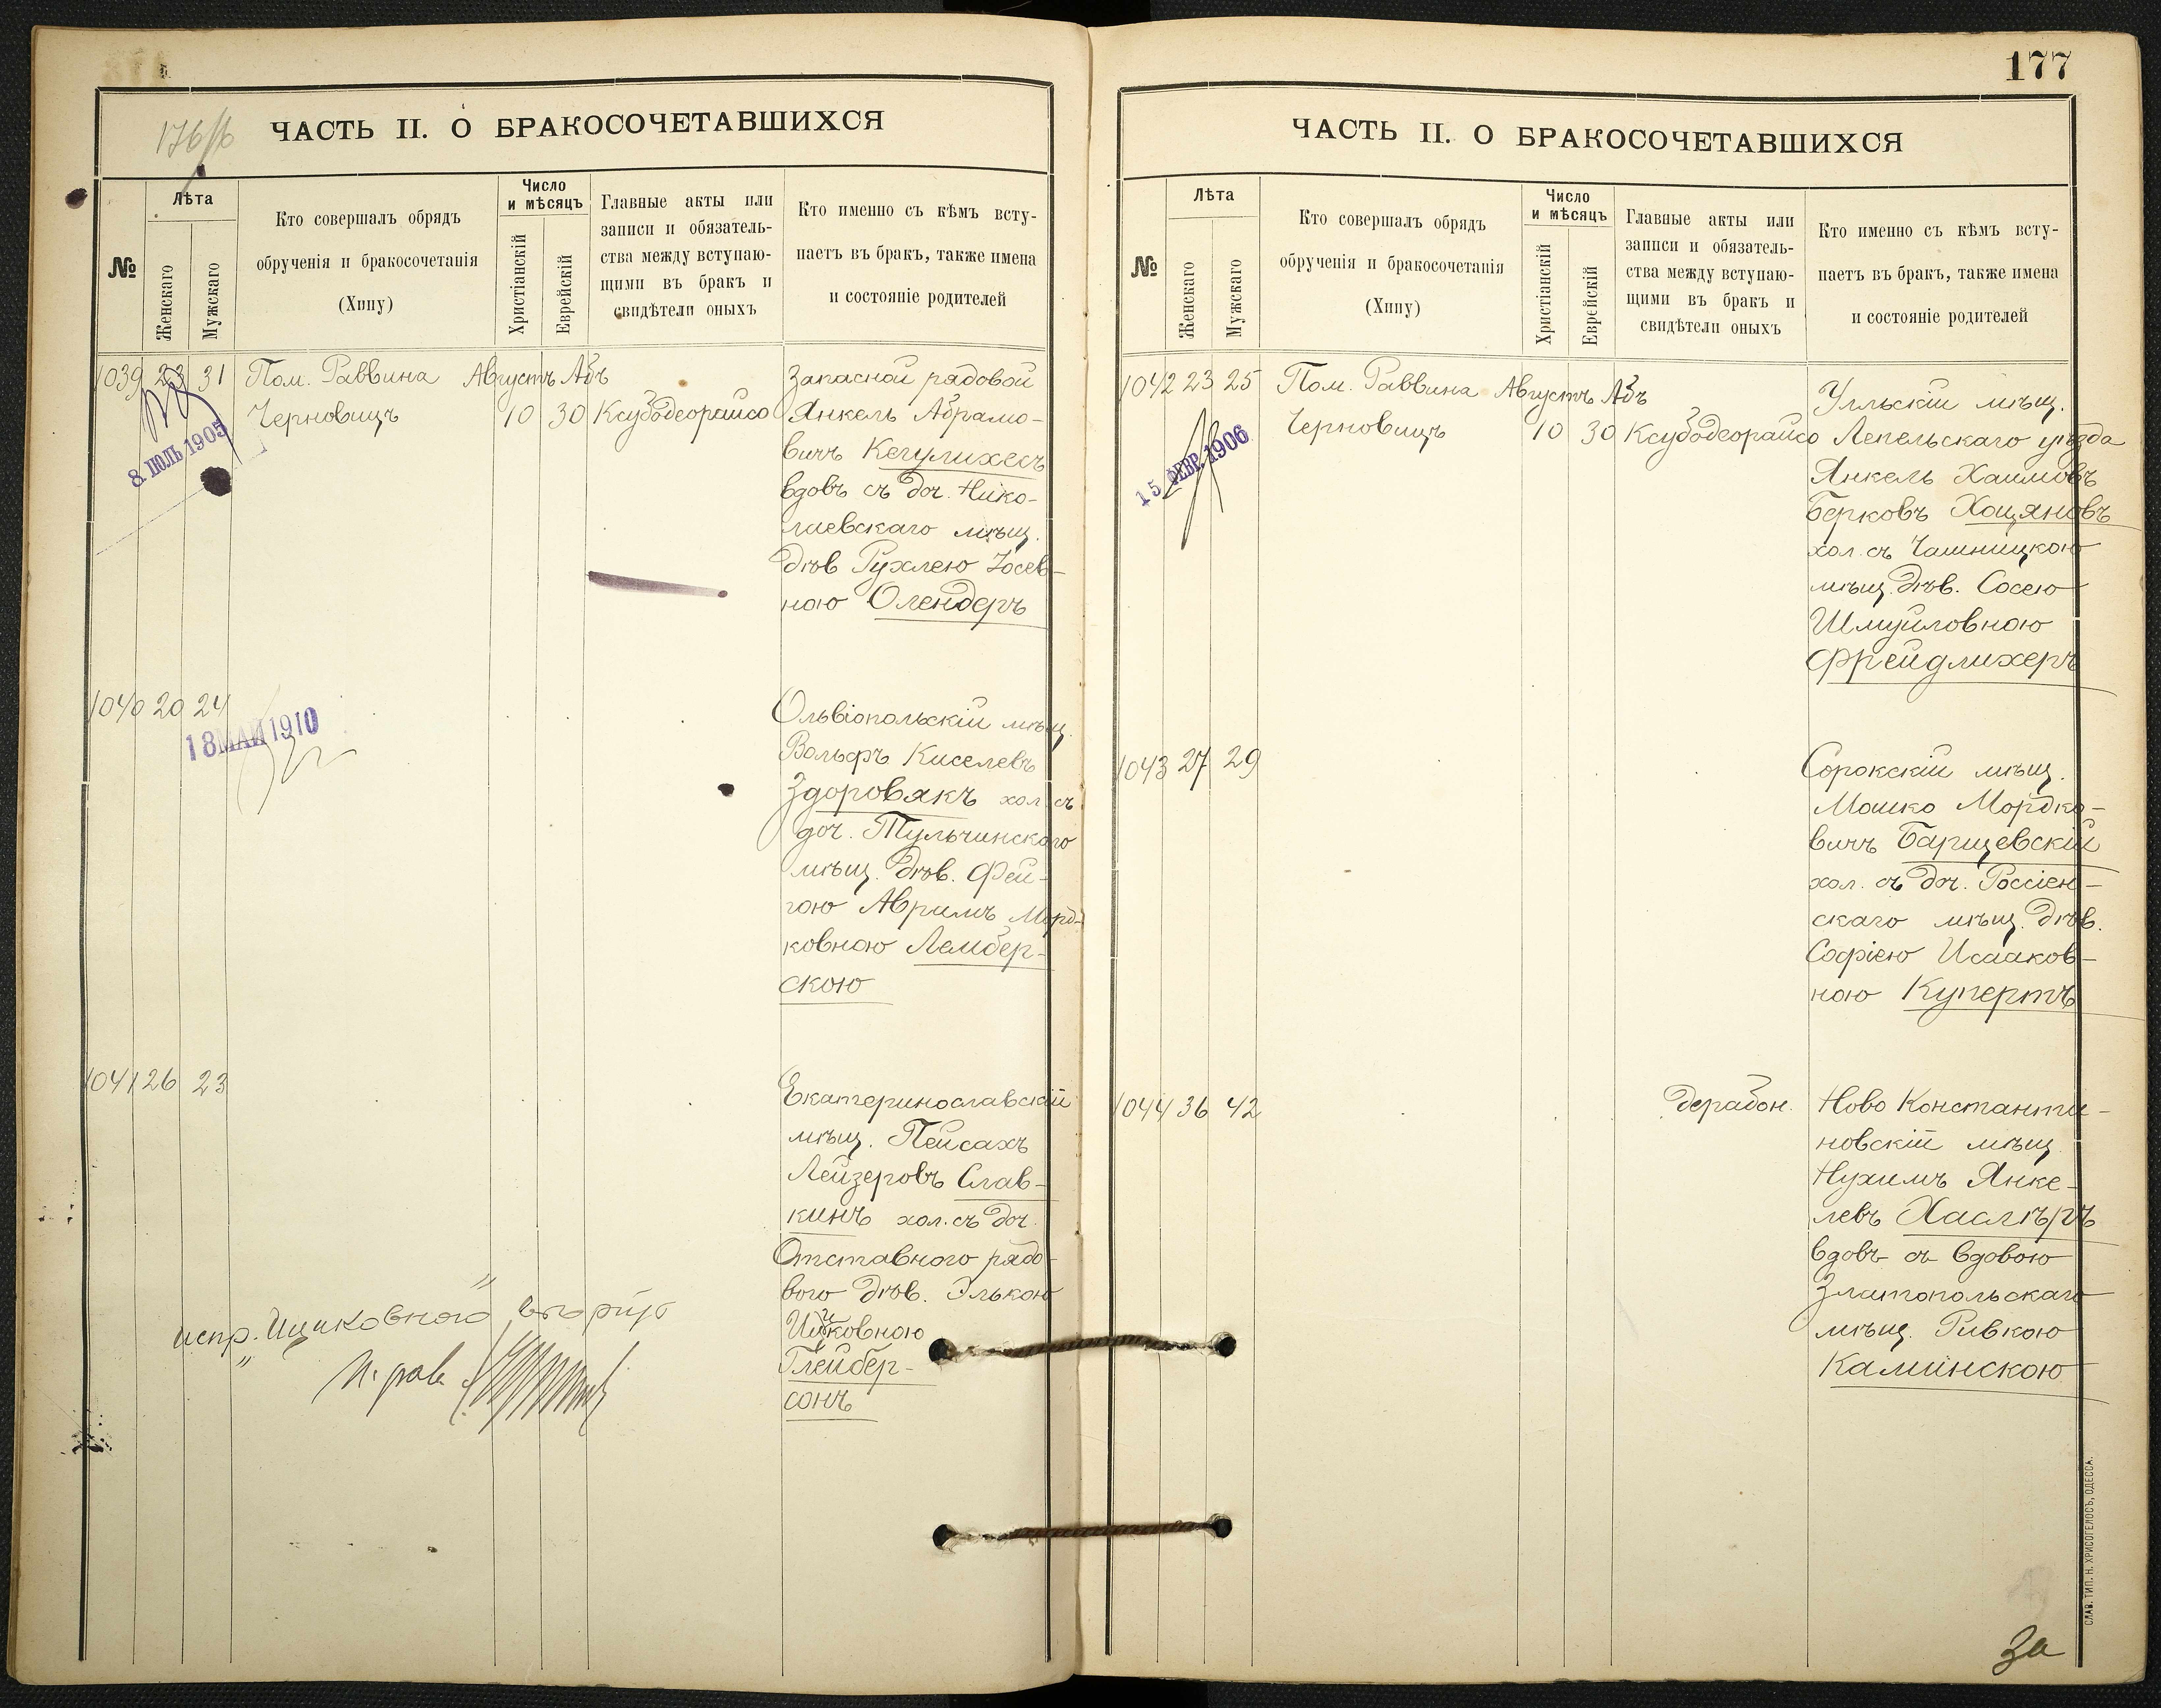 176/б
ЧАСТЬ II. О БРАКОСОЧЕТАВШИХСЯ
№
Лѣта
Женскаго
Мужскаго
Кто совершалъ обрядъ
обрученія и бракосочетанія
(Хипу)
Число
и мѣсяцъ
Христіанскій
Еврейскій
Главные акты или
записи и обязатель-
ства между вступаю-
щими въ бракъ и
свидѣтели оныхъ
Кто именно съ кѣмъ всту-
паетъ въ бракъ, также имена
и состояніе родителей
1039 23 31 Пом. Раввина Августъ Абъ Запасной рядовой
Черновицъ 10 30 Ксубодеорайсо Янкель Абрамо-
вичъ Кегулихесъ
вдовъ съ доч. Нико-
лаевскаго мѣщ.
дѣв Рухлею Іосев-
ною Олендеръ
8 ІЮЛЬ 1905
1040 20 24 Ольвіопольскій мѣщ.
18 МАЙ 1910
Вольфъ Киселевъ
Здоровякъ хол. съ
доч. Тульчинскаго
мѣщ. дѣв. Фей-
гою Аврумъ Морд-
ковною Лембер-
скою
1041 26 23 Екатеринославскій
мѣщ. Пейсахъ
Лейзеровъ Слав-
кинъ хол. съ доч.
Отставного рядо-
вого дѣв. Элькою
Ицковною
Глейбер-
сонъ
испр. „Ицковною“ вѣрно
П. рав.
177
ЧАСТЬ II. О БРАКОСОЧЕТАВШИХСЯ
№
Лѣта
Женскаго
Мужскаго
Кто совершалъ обрядъ
обрученія и бракосочетанія
(Хипу)
Число
и мѣсяцъ
Христіанскій
Еврейскій
Главные акты или
записи и обязатель-
ства между вступаю-
щими въ бракъ и
свидѣтели оныхъ
Кто именно съ кѣмъ всту-
паетъ въ бракъ, также имена
и состояніе родителей
1042 23 25 Пом. Раввина Августъ Абъ Улльскій мѣщ.
Черновицъ 10 30 Ксубодеорайсо Лепельскаго уѣзда
Янкель Хаимовъ
Берковъ Хоцяновъ
хол. съ Чашницкою
мѣщ. дѣв. Сосею
Шмуйловною
Фрейдлихеръ
15 ФЕВР. 1906
1043 27 29 Сорокскій мѣщ.
Мошко Мордко-
вичъ Барщевскій
хол. съ доч. Россіен-
скаго мѣщ. дѣв.
Софіею Исааков-
ною Купертъ
1044 36 42 Дерабон. Ново Константи-
новскій мѣщ.
Нухимъ Янке-
левъ
вдовъ съ вдовою
Златопольскаго
мѣщ. Ривкою
Каминскою
СЛАВ. ТИП. Н. ХРИСОГЕЛОСЪ, ОДЕССА.
За